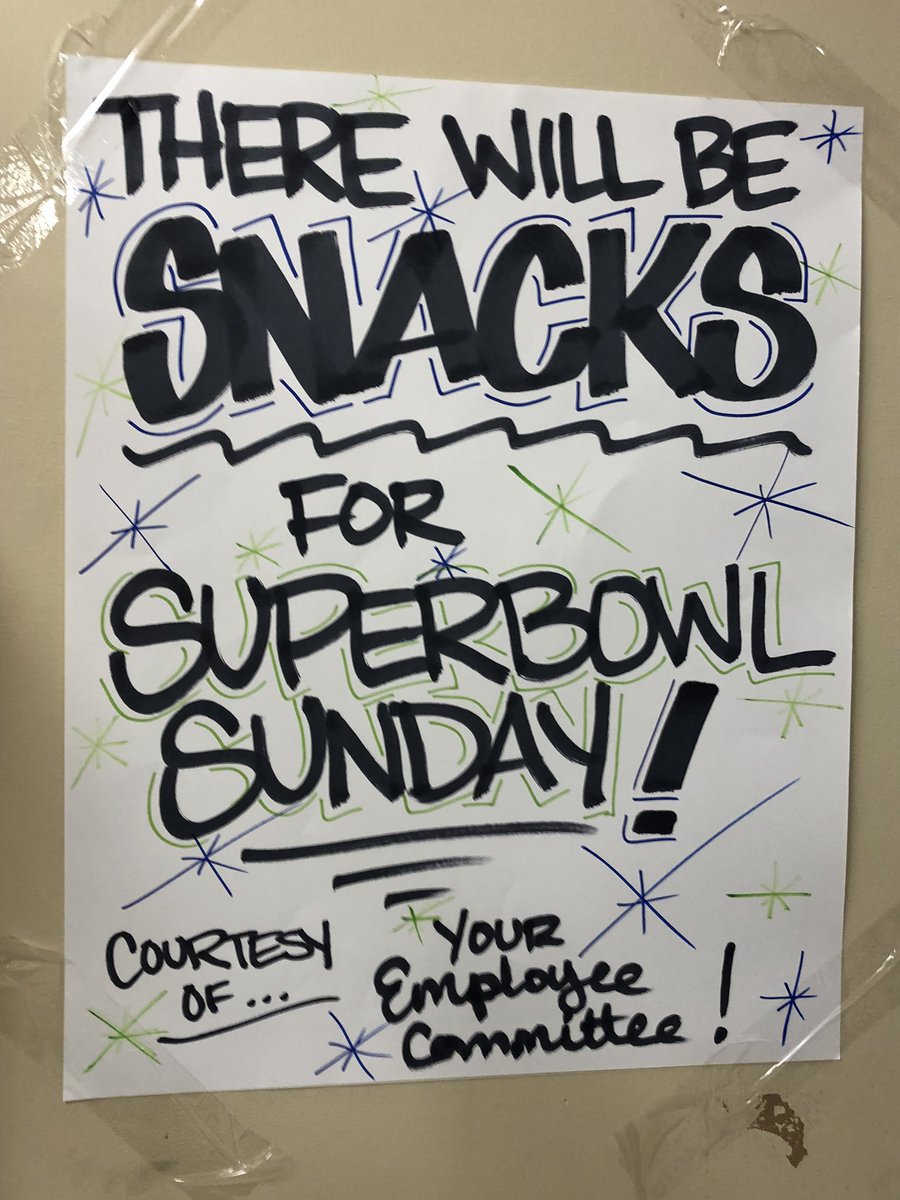 THERE WILL BE
SNACKS
FOR
SUPERBOWL
SUNDAY!
COURTESY
OF...
YOUR
Employee
Committee!